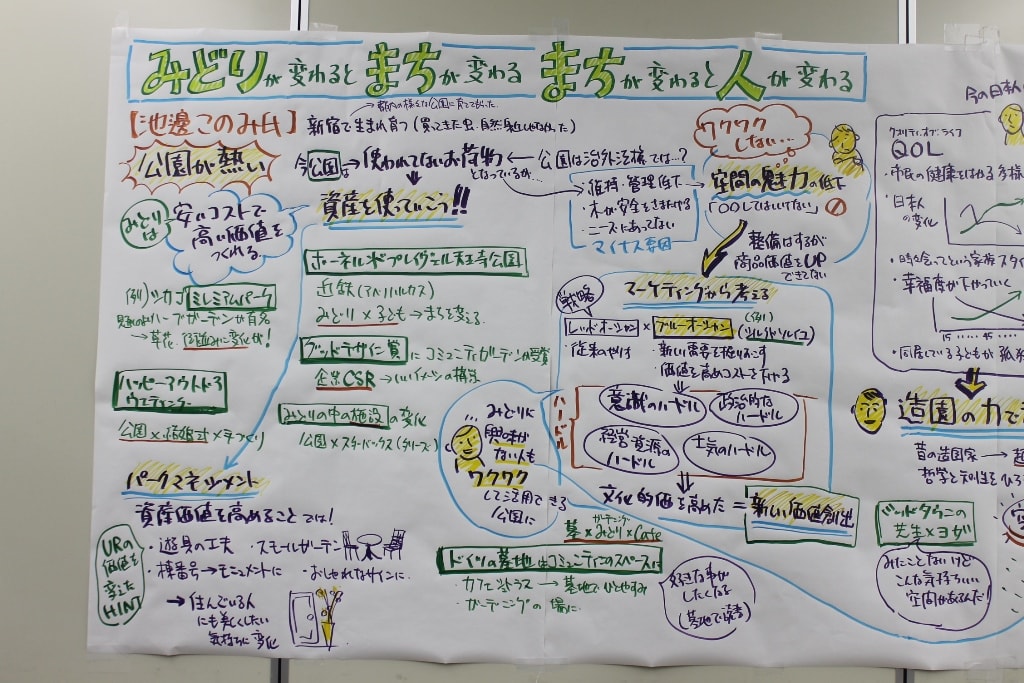 みどりが変わるとまちが変わる まちが変わると人が変わる
【池邊このみ氏】
新宿で生まれ育つ
公園が熱い
今公園は→使われてないお荷物
となっているが…
公園は治外法権では…?
ワクワク
しない…
資産を使っていこう!!
みどりは
安いコストで
高い価値を
つくれる。
・維持・管理低下
・ニーズにあってない
マイナス要因
空間の魅力の低下
「〇〇してはいけない」
整備はするが
商品価値をUP
できてない
例)シカゴ ミレニアムパーク
ボーネルンドプレイヴィル天王寺公園
近鉄(アベノハルカス)
みどり×子ども→まちを変える
グッドデザイン賞にコミュニティガーデンが受賞
企業CSR→いいイメージの構築
みどりの中の施設の変化
公園×スターバックス
ハッピーアウトドア
ウエディング
公園×結婚式×手づくり
戦略
マーケティングから考える
レッドオーシャン×ブルーオーシャン
(例)
シルクドソレイユ
・従来のやり方
・新しい需要を掘りおこす
・価値を高めコストを下げる
ハードル
意識のハードル
政治的な
ハードル
経営資源の
ハードル
士気のハードル
文化的価値を高めた=新しい価値創出
…みどりに
興味が
ない人も
ワクワク
して活用できる
公園に
パークマネジメント
資産価値を高めることでは!
URの
価値を
変えた
HINT
・遊具の工夫
・スモールガーデン
・棟番号→モニュメントに
・おしゃれなサインに
→住んでいる人
にも美しくしたい
気持ちに変化
ガーデニング
墓×みどり×Cafe
ドイツの墓地はコミュニティのスペースに
・カフェ・テラス→墓地でひとやすみ
・ガーデニングの場に
好きな事が
したくなる
(墓地で読書)
今の日本人
クオリティ・オブ・ライフ
QOL
・市民の健康をはかる
・日本人
の変化
・幸福度が下がっていく
15 45
造園の力で
昔の造園家→
哲学と
ベッドタウンの
先生×ヨガ
みたことないけど
こんな気持ちいい
空間があるんだ!